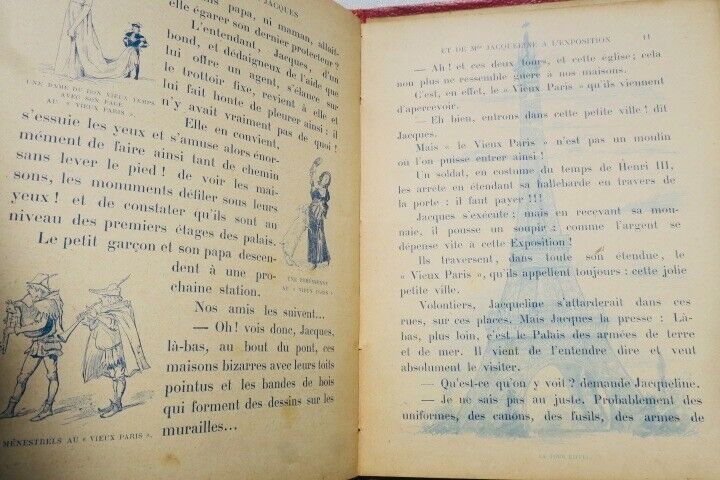 JACQUES
papa, ni maman, allait-
elle égarer son dernier protecteur ?
L'entendant, Jacques, d'un
bond, et dédaigneux de l'aide que
lui offre un agent, s'élance sur
le trottoir fixe, revient à elle et
lui fait honte de pleurer ainsi : il
n'y avait vraiment pas de quoi !
Elle en convient,
s'essuie les yeux et s'amuse alors énor-
mément de faire ainsi tant de chemin
sans lever le pied ! de voir les mai-
sons, les monuments défiler sous leurs
yeux ! et de constater qu'ils sont au
niveau des premiers étages des palais.
Le petit garçon et son papa descen-
dent à une pro-
chaine station.
Nos amis les suivent...
— Oh ! vois donc, Jacques,
là-bas, au bout du pont, ces
maisons bizarres avec leurs toits
pointus et les bandes de bois
qui forment des dessins sur les
murailles...
UNE DAME DU BON VIEUX TEMPS
AVEC SON PAGE
AU « VIEUX PARIS ».
UNE
AU « VIEUX PARIS »
MÉNESTRELS AU « VIEUX PARIS ».
ET DE Mlle JACQUELINE A L'EXPOSITION 11
— Ah ! et ces deux tours, et cette église ; cela
non plus ne ressemble guère à nos maisons.
C'est, en effet, le « Vieux Paris » qu'ils viennent
d'apercevoir.
— Eh bien, entrons dans cette petite ville ! dit
Jacques.
Mais « le Vieux Paris » n'est pas un moulin
où l'on puisse entrer ainsi !
Un soldat, en costume du temps de Henri III,
les arrête en étendant sa hallebarde en travers de
la porte : il faut payer !!!
Jacques s'exécute ; mais en recevant sa mon-
naie, il pousse un soupir : comme l'argent se
dépense vite à cette Exposition !
Ils traversent, dans toute son étendue, le
« Vieux Paris », qu'ils appellent toujours : cette jolie
petite ville.
Volontiers, Jacqueline s'attarderait dans ces
rues, sur ces places. Mais Jacques la presse : Là-
bas, plus loin, c'est le Palais des armées de terre
et de mer. Il vient de l'entendre dire et veut
absolument le visiter.
— Qu'est-ce qu'on y voit ? demande Jacqueline.
— Je ne sais pas au juste. Probablement des
uniformes, des canons, des fusils, des armes de
LA TOUR EIFFEL.